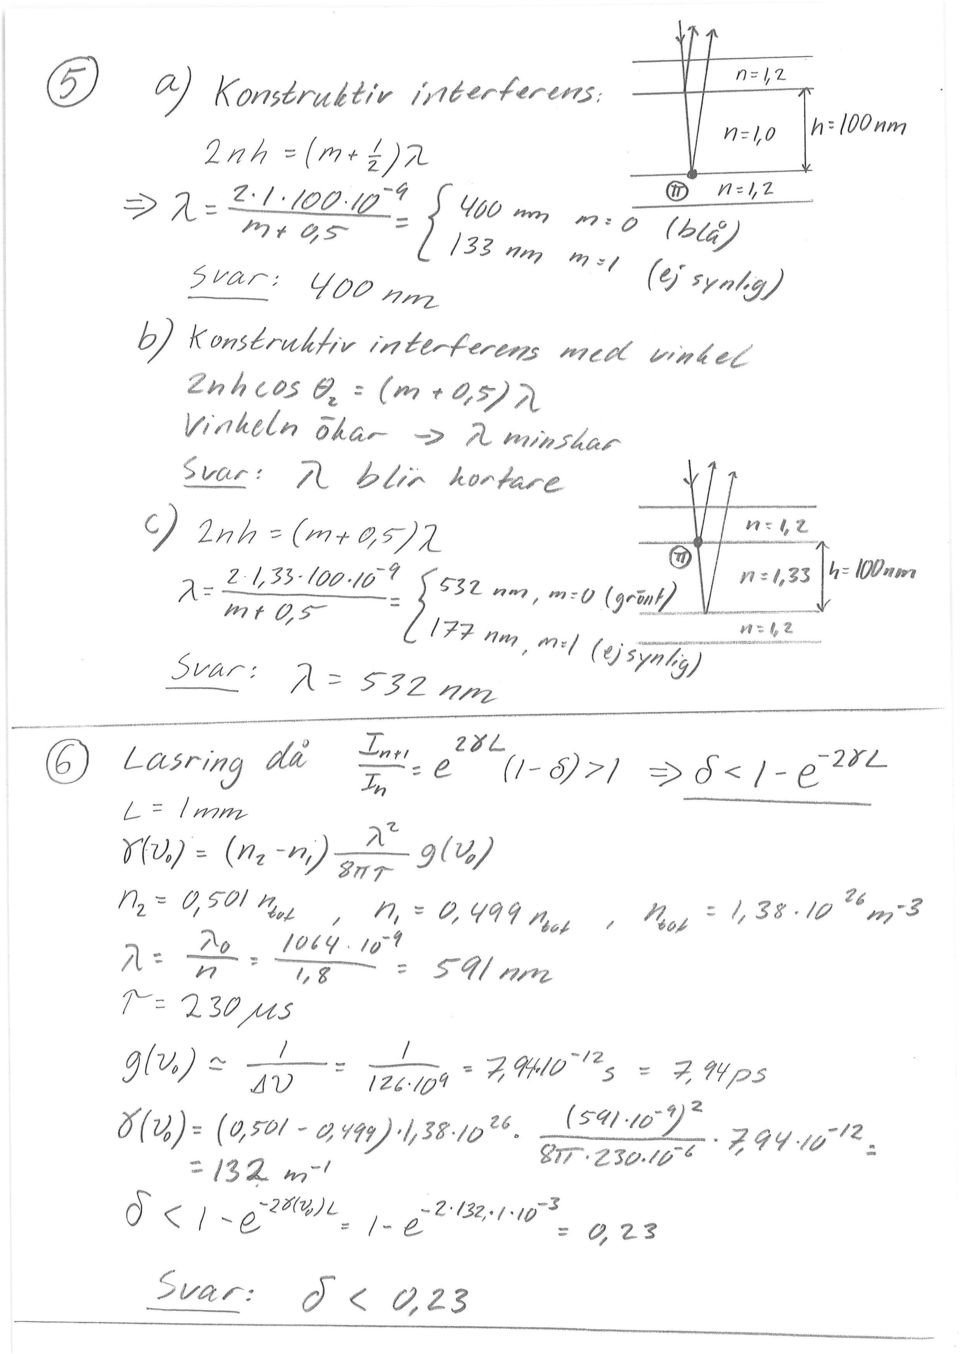 5 a) Konstruktiv interferens:
n=1,2
n=1,0 h=100 nm
π n=1,2
2nh = (m+½)λ
⇒ λ = 2·1·100·10⁻⁹ / (m+0,5) = { 400 nm m=0 (blå)
133 nm m=1 (ej synlig)
Svar: 400 nm
b) Konstruktiv interferens med vinkel
2nh cos θ₂ = (m+0,5)λ
Vinkeln ökar → λ minskar
Svar: λ blir kortare
c) 2nh = (m+0,5)λ
n=1,2
π n=1,33 h=100nm
n=1,2
λ = 2·1,33·100·10⁻⁹ / (m+0,5) = { 532 nm, m=0 (grönt)
177 nm, m=1 (ej synlig)
Svar: λ = 532 nm
6 Lasring då Iₙ₊₁/Iₙ = e^(2γL) (1-δ) > 1 ⇒ δ < 1-e^(-2γL)
L = 1mm
γ(ν₀) = (n₂-n₁) λ²/(8πτ) g(ν₀)
n₂ = 0,501 n_tot , n₁ = 0,499 n_tot , n_tot = 1,38·10²⁶ m⁻³
λ = λ₀/n = 1064·10⁻⁹/1,8 = 591 nm
τ = 230 μs
g(ν₀) ≃ 1/Δν = 1/(126·10⁹) = 7,94·10⁻¹² s = 7,94 ps
γ(ν₀) = (0,501-0,499)·1,38·10²⁶ · (591·10⁻⁹)²/(8π·230·10⁻⁶) · 7,94·10⁻¹² =
= 132 m⁻¹
δ < 1-e^(-2γ(ν₀)L) = 1-e^(-2·132·1·10⁻³) = 0,23
Svar: δ < 0,23